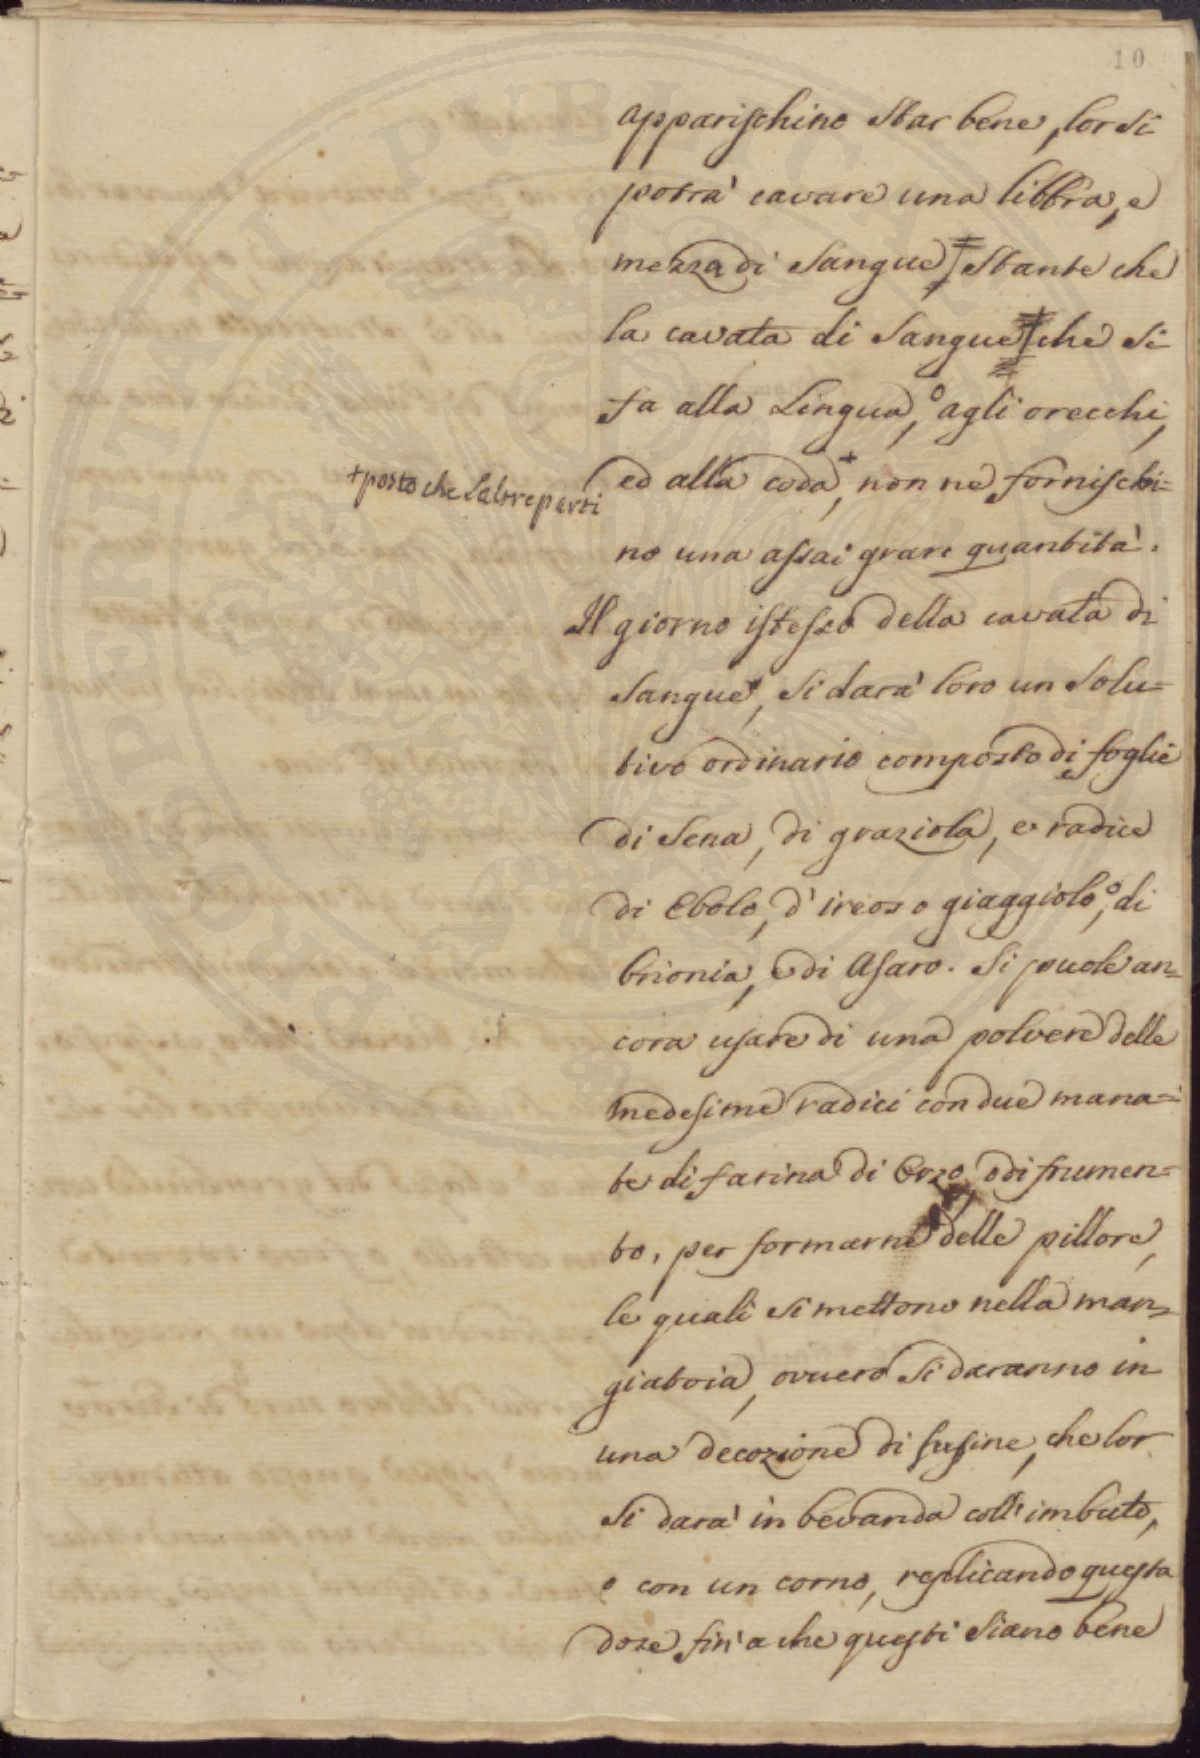 10
apparischino star bene, lor si
potrà cavare una libbra, e
mezza di sangue stante che
la cavata di sangue che si
fa alla Lingua, o agli orecchi,
+ posto che l'altre parti
ed alla coda +, non ne fornischi=
no una assai grare quantità.
Il giorno istesso della cavata di
sangue, si darà loro un solu=
tivo ordinario composto di foglie
di Sena, di graziola, e radice
di Ebolo, d'ireos o giaggiolo, o di
brionia, e di Asaro. Si puole an=
cora usare di una polvere delle
medesime radici con due mana=
te di farina di Orzo, o di frumen=
to, per formarne delle pillore,
le quali si mettono nella man=
giatoia, ovvero si daranno in
una decozione di susine, che lor
si darà in bevanda coll'imbuto,
o con un corno, replicando questa
dose fin'a che questi siano bene
PROSPERITATI PUBLICAE